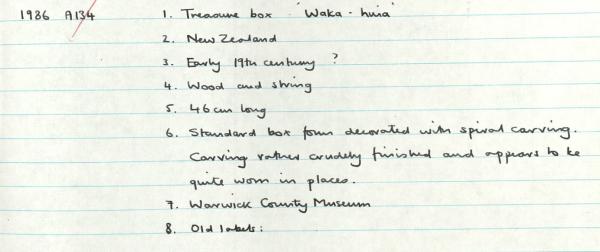 1986 A134 1. Treasure box 'Waka-huia'
2. New Zealand
3. Early 19th century ?
4. Wood and string
5. 46cm long
6. Standard box form decorated with spiral carving.
Carving rather crudely finished and appears to be
quite worn in places.
7. Warwick County Museum
8. Old labels: